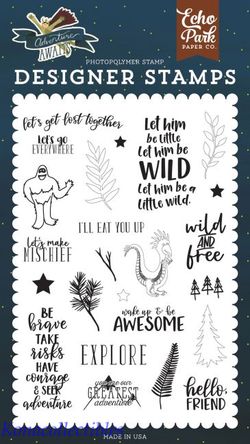 Adventure
AWAITS
Echo
Park
PAPER CO.
PHOTOPOLYMER STAMP
DESIGNER STAMPS
let's get lost together
Let's go
EVERYWHERE
Let him
be little
Let him be
WILD
Let him be a
little wild.
I'LL EAT YOU UP
wild
AND
free
let's make
MISCHIEF
wake up & be
AWESOME
BE
brave
TAKE
risks
HAVE
courage
& SEEK
adventure
EXPLORE
you are our
GREATEST
adventure
hello,
FRIEND
MADE IN USA